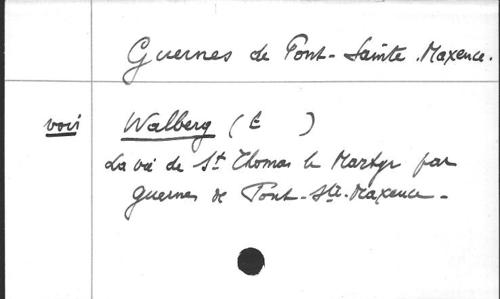 Guernes de Pont-Sainte.Maxence.
voir Walberg (E )
La vie de St Thomas le Martyr par
guernes de Pont-Ste.Maxence-